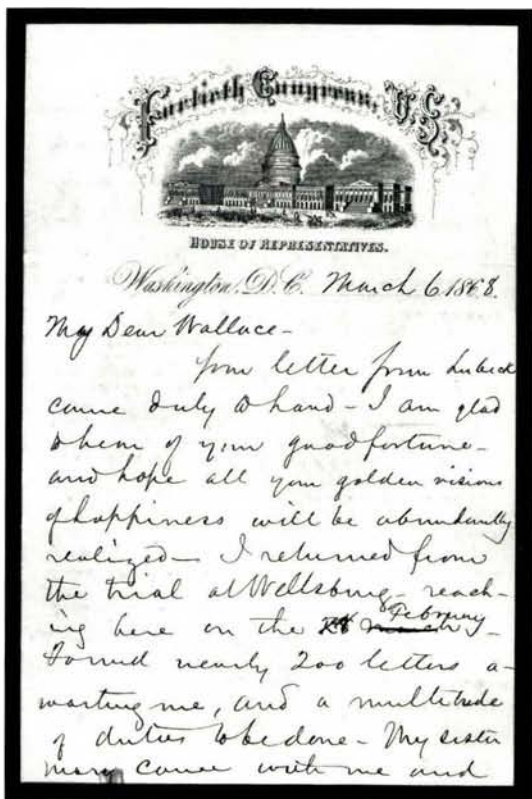 Fortieth Congress, U.S.
HOUSE OF REPRESENTATIVES.
Washington, D.C. March 6 1868.
My Dear Wallace-
Your letter from Lubeck
came duly to hand - I am glad
to hear of your good fortune -
and hope all your golden visions
of happiness will be abundantly
realized - I returned from
the trial at Wellsburg - reach-
ing here on the February -
Found nearly 200 letters a-
waiting me, and a multitude
of duties to be done - My sister
Mary came with me and